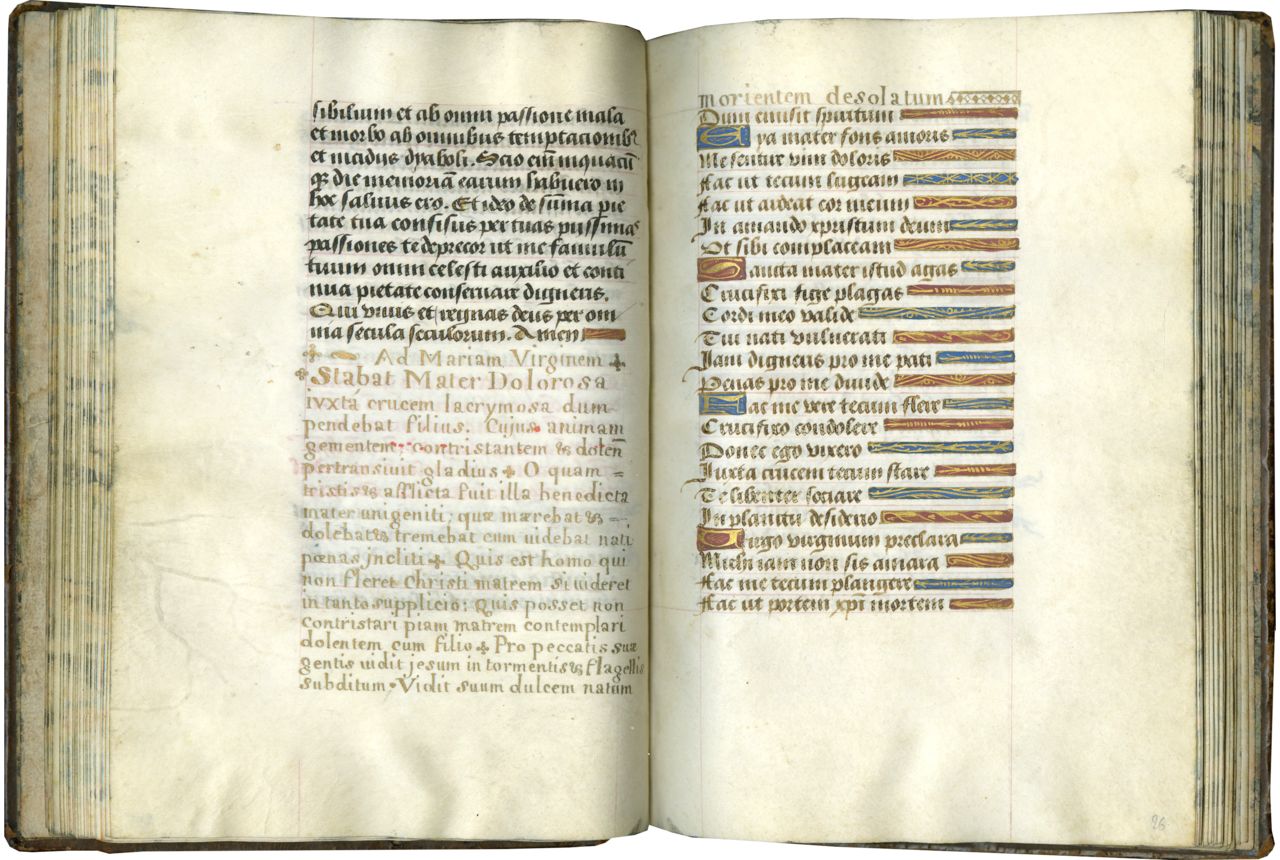 sibilium et ab omni passione mala
et morbo ab omnibus temptacionib9
et insidiis dyaboli. Scio em̄ inquacū
q̨ die memoriā earum habuero in
hoc salvus ero. Et ideo de sūma pie
tate tua confisus per tuas pijssimas
passiones te deprecor ut me famulū
tuum omni celesti auxilio et conti
nua pietate conservare digneris.
Qui vivis et regnas deus per om
nia secula seculorum. Amen
Ad Mariam Virginem
Stabat Mater Dolorosa
iuxtá crucem lacrymosa dum
pendebat filius. Cujus animam
gementem; contristantem & dolen̄
pertransivit gladius ✤ O quam =
tristis & afflicta fuit illa benedicta
mater unigeniti; quæ mærebat & =
dolebat & tremebat cum uidebat nati
pœnas jncliti ✤ Quis est homo qui
non fleret Christi matrem si uideret
in tanto supplicio; Quis posset non
contristari piam matrem contemplari
dolentem cum filio ✤ Pro peccatis suæ
gentis uidit jesum in tormentis & flagellis
subditum • Vidit suum dulcem natum
morientem desolatum
Dum emisit spiritum
Eya mater fons amoris
Me sentire vim doloris
Fac ut tecum lugeam
Fac ut ardeat cor meum
In amando xpristum deum
Ut sibi complaceam
Sancta mater istud agas
Crucifixi fige plagas
Cordi meo valide
Tui nati vulnerati
Iam digneris pro me pati
Penas pro me divide
Fac me vere tecum flere
Crucifixo condolere
Donec ego vixero
Iuxta crucem tecum stare
Te libenter sociare
In planctu desiderio
Virgo virginum preclara
Michi iam non sis amara
Fac me tecum plangere
Fac ut portem xp̄i mortem
26